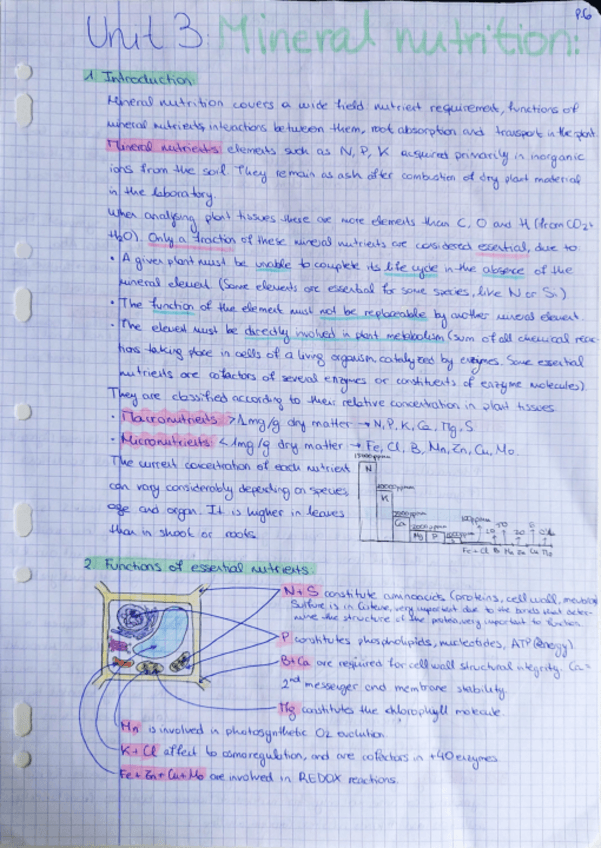 P.6
Unit 3: Mineral nutrition:
1. Introduction:
Mineral nutrition covers a wide field: nutrient requirement, functions of
mineral nutrients, interactions between them, root absorption and transport in the plant.
Mineral nutrients: elements such as N, P, K acquired primarily in inorganic
ions from the soil. They remain as ash after combustion of dry plant material
in the laboratory.
When analysing plant tissues there are more elements than C, O and H (from CO2+
H2O). Only a fraction of these mineral nutrients are considered essential, due to
• A given plant must be unable to complete its life cycle in the absence of the
mineral element (Some elements are essential for some species, like N or Si)
• The function of the element must not be replaceable by another mineral element
• The element must be directly involved in plant metabolism (sum of all chemical reac
tions taking place in cells of a living organism, catalyzed by enzymes. Some essential
nutrients are cofactors of several enzymes or constituents of enzyme molecules).
They are classified according to their relative concentration in plant tissues
• Macronutrients: >1mg/g dry matter → N, P, K, Ca, Mg, S
• Micronutrients: <1mg/g dry matter → Fe, Cl, B, Mn, Zn, Cu, Mo.
The current concentration of each nutrient
can vary considerably depending on species
age and organ. It is higher in leaves
than in shoot or roots.
N
K
Ca
Mg P
100ppm
20
Fe + Cl B Mn Zn Cu
2. Functions of essential nutrients:
N+S constitute aminoacids (proteins, cell wall,
Sulfure is in very important due to the bonds that deter-
mine the structure of the protein, very important to function.
P constitutes phospholipids, nucleotides, ATP (energy)
B+Ca are required for cell wall structural integrity. Ca=
2nd messenger and membrane stability.
Mg constitutes the chlorophyll molecule.
Mn is involved in photosynthetic O2 evolution
K+Cl affect to osmoregulation, and are cofactors in +40 enzymes.
Fe+Zn+Cu+Mo are involved in REDOX reactions.